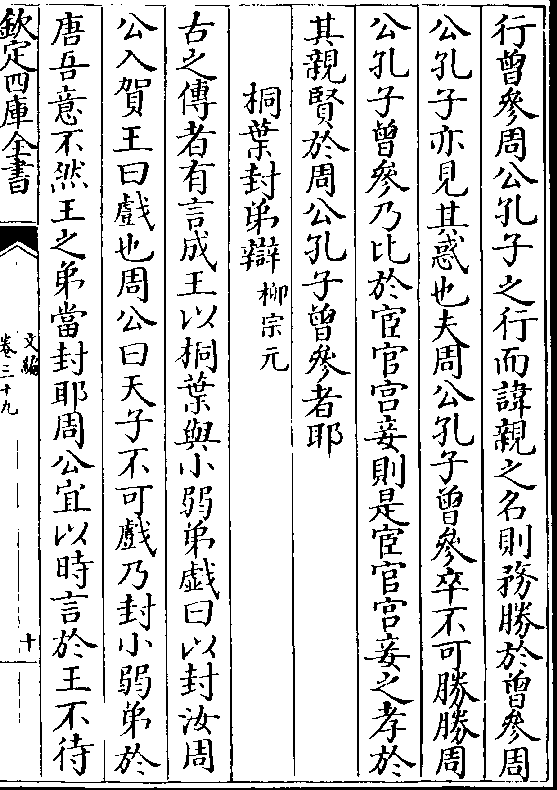 行曾參周公孔子之行而諱親之名則務勝於曾參周
公孔子亦見其惑也夫周公孔子曾參卒不可勝勝周
公孔子曾參乃比於宦官宫妾則是宦官宫妾之孝於
其親賢於周公孔子曾參者耶
桐葉封弟辯 柳宗元
古之傳者有言成王以桐葉與小弱弟戯曰以封汝周
公入賀王曰戲也周公曰天子不可戲乃封小弱弟於
唐吾意不然王之弟當封耶周公宜以時言於王不待
欽定四庫全書
文編
卷三十九
十